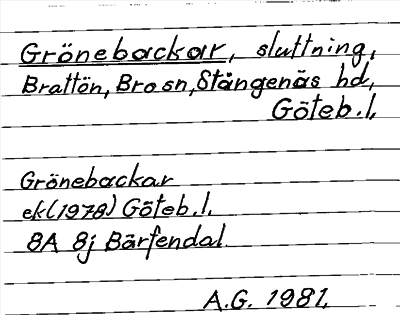 Grönebackar, sluttning,
Brattön, Bro sn, Stångenäs hd,
Göteb.l.
Grönebackar
ek(1978) Göteb.l.
8A 8j Bärfendal
A.G. 1981.